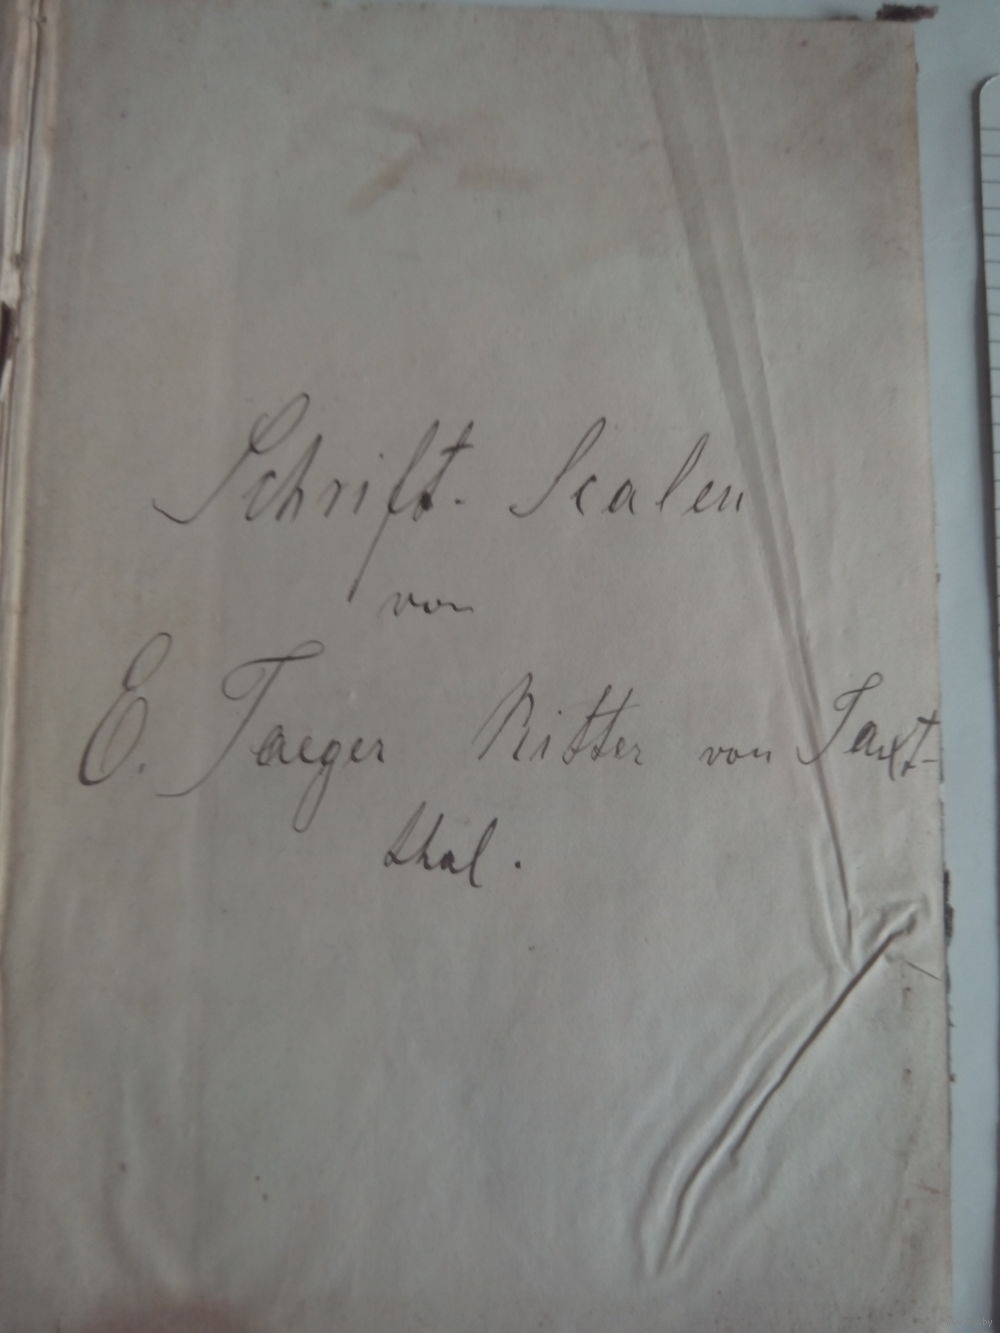 Schrift-Scalen
von
E. Jaeger Ritter von Jaxt-
thal.